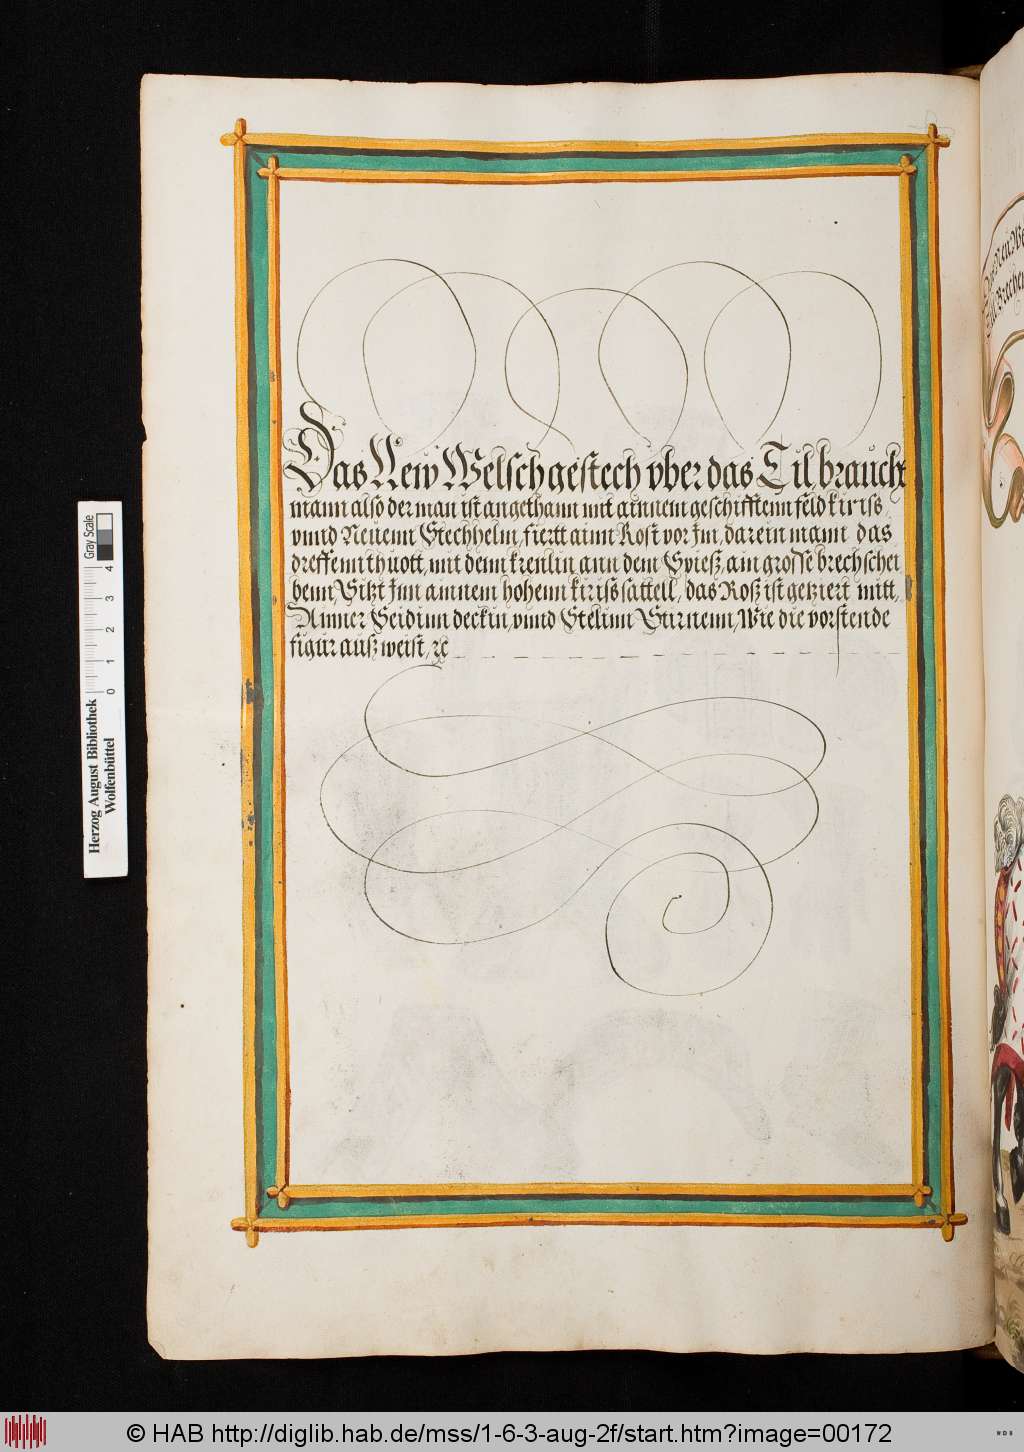 Das New Welsch gestech vber das Til braucht
mann also der man ist angethann mit ainnem geschifftenn feld kiriss
vnnd Neuenn Stechhelm, fiertt ainn Rost vor Im, darein mann das
dreffenn thuott, mit denn krenlin ann dem Spiesz, ain grosse brechschei
benn, Sitzt Imn ainnem hohenn kiriss sattell, das Rosz ist geziert mitt,
Ainner Seidinn deckin, vnnd Stelinn Stirnenn, Wie die vorstende
figur ausz weist, ꝛc
Gray Scale
0 1 2 3 4
Herzog August Bibliothek
Wolfenbüttel
© HAB http://diglib.hab.de/mss/1-6-3-aug-2f/start.htm?image=00172